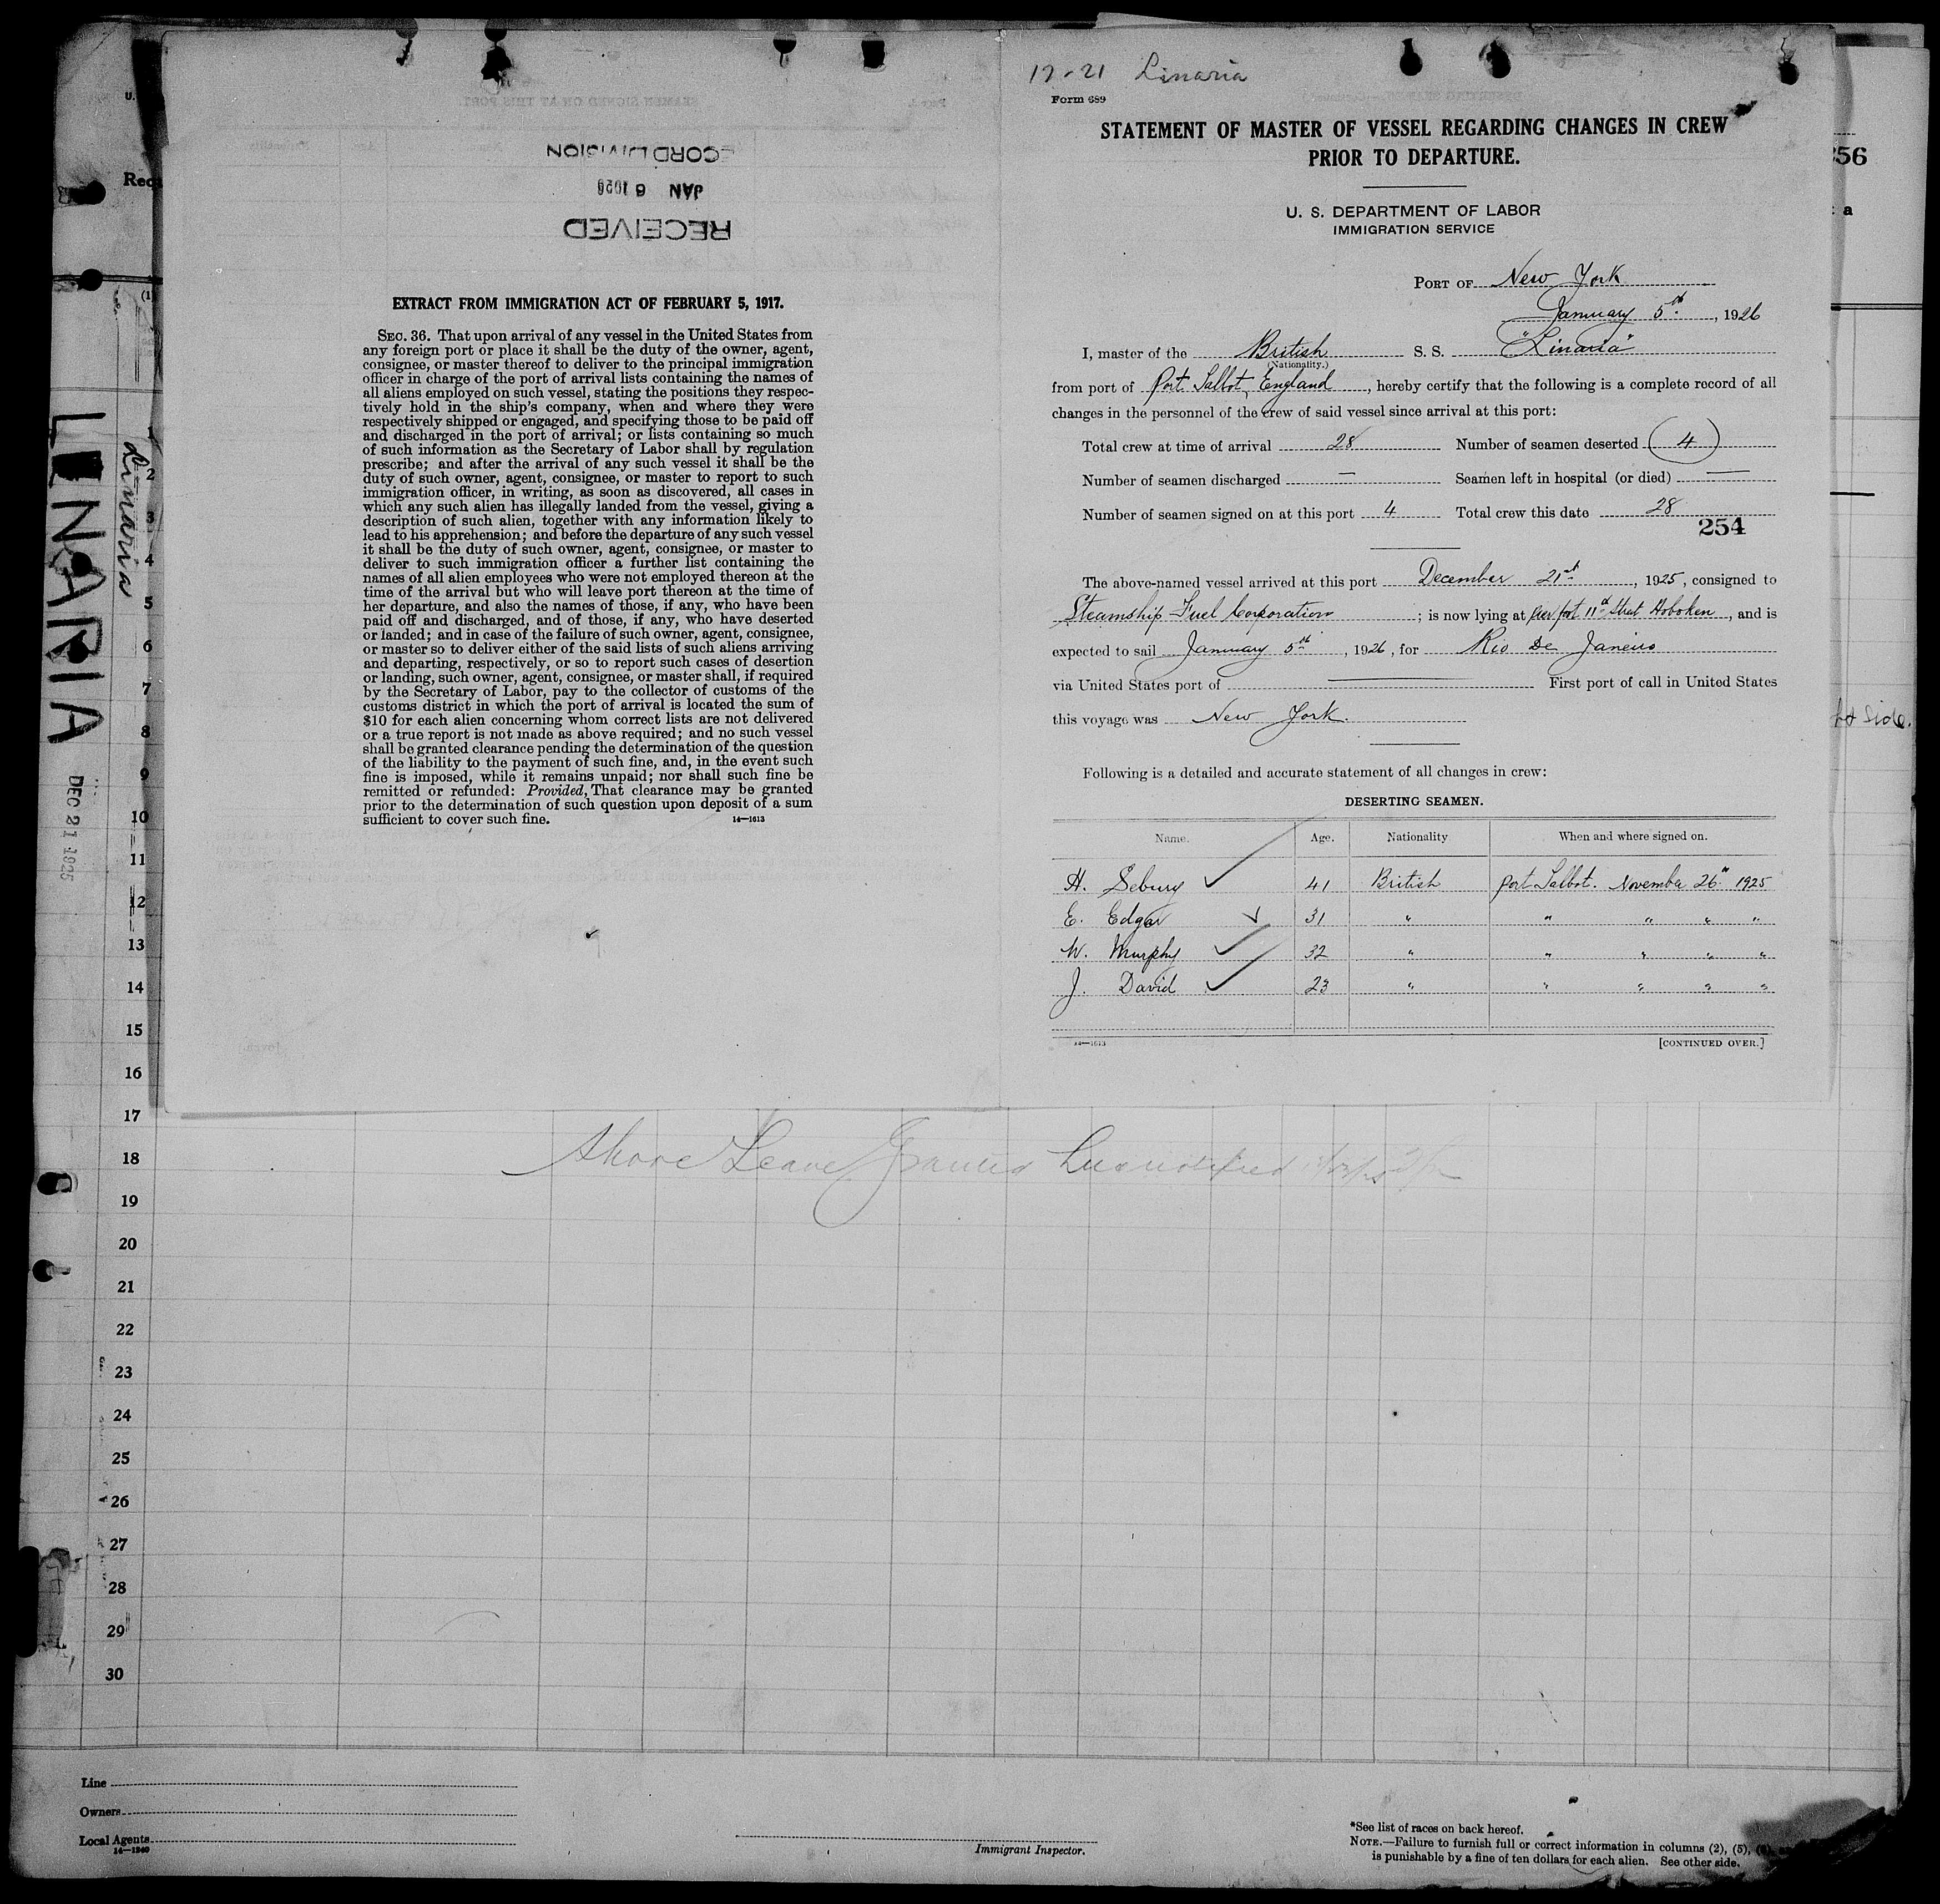 RECORD DIVISION
JAN 6 1926
RECEIVED
EXTRACT FROM IMMIGRATION ACT OF FEBRUARY 5, 1917.
SEC. 36. That upon arrival of any vessel in the United States from
any foreign port or place it shall be the duty of the owner, agent,
consignee, or master thereof to deliver to the principal immigration
officer in charge of the port of arrival lists containing the names of
all aliens employed on such vessel, stating the positions they respec-
tively hold in the ship's company, when and where they were
respectively shipped or engaged, and specifying those to be paid off
and discharged in the port of arrival; or lists containing so much
of such information as the Secretary of Labor shall by regulation
prescribe; and after the arrival of any such vessel it shall be the
duty of such owner, agent, consignee, or master to report to such
immigration officer, in writing, as soon as discovered, all cases in
which any such alien has illegally landed from the vessel, giving a
description of such alien, together with any information likely to
lead to his apprehension; and before the departure of any such vessel
it shall be the duty of such owner, agent, consignee, or master to
deliver to such immigration officer a further list containing the
names of all alien employees who were not employed thereon at the
time of the arrival but who will leave port thereon at the time of
her departure, and also the names of those, if any, who have been
paid off and discharged, and of those, if any, who have deserted
or landed; and in case of the failure of such owner, agent, consignee,
or master so to deliver either of the said lists of such aliens arriving
and departing, respectively, or so to report such cases of desertion
or landing, such owner, agent, consignee, or master shall, if required
by the Secretary of Labor, pay to the collector of customs of the
customs district in which the port of arrival is located the sum of
$10 for each alien concerning whom correct lists are not delivered
or a true report is not made as above required; and no such vessel
shall be granted clearance pending the determination of the question
of the liability to the payment of such fine, and, in the event such
fine is imposed, while it remains unpaid; nor shall such fine be
remitted or refunded: Provided, That clearance may be granted
prior to the determination of such question upon deposit of a sum
sufficient to cover such fine.
14—1613
12-21 Linaria
Form 689
STATEMENT OF MASTER OF VESSEL REGARDING CHANGES IN CREW
PRIOR TO DEPARTURE.
U. S. DEPARTMENT OF LABOR
IMMIGRATION SERVICE
PORT OF New York
January 5th, 1926
I, master of the British S. S. "Linaria"
(Nationality.)
from port of Port Talbot, England, hereby certify that the following is a complete record of all
changes in the personnel of the crew of said vessel since arrival at this port:
Total crew at time of arrival 28 Number of seamen deserted 4
Number of seamen discharged — Seamen left in hospital (or died) —
Number of seamen signed on at this port 4 Total crew this date 28
254
The above-named vessel arrived at this port December 21st, 1925, consigned to
Steamship Fuel Corporation; is now lying at pier foot 11th Street Hoboken, and is
expected to sail January 5th, 1926, for Rio De Janeiro
via United States port of — First port of call in United States
this voyage was New York.
Following is a detailed and accurate statement of all changes in crew:
DESERTING SEAMEN.
Name. Age. Nationality When and where signed on.
H. Sebury 41 British Port Talbot. November 26th 1925
E. Edgar 31 " " " " "
W. Murphy 32 " " " " "
J. David 23 " " " " "
14—1613
[CONTINUED OVER.]
LINARIA
Linaria
DEC 21 1925
U.
Req
(1)
1
2
3
4
5
6
7
8
9
10
11
12
13
14
15
16
17
18
19
20
21
22
23
24
25
26
27
28
29
30
256
a
Side.
Shore Leave Granted
Line
Owners
Local Agents
14—1240
Immigrant Inspector.
*See list of races on back hereof.
NOTE.—Failure to furnish full or correct information in columns (2), (5), (6),
is punishable by a fine of ten dollars for each alien. See other side.